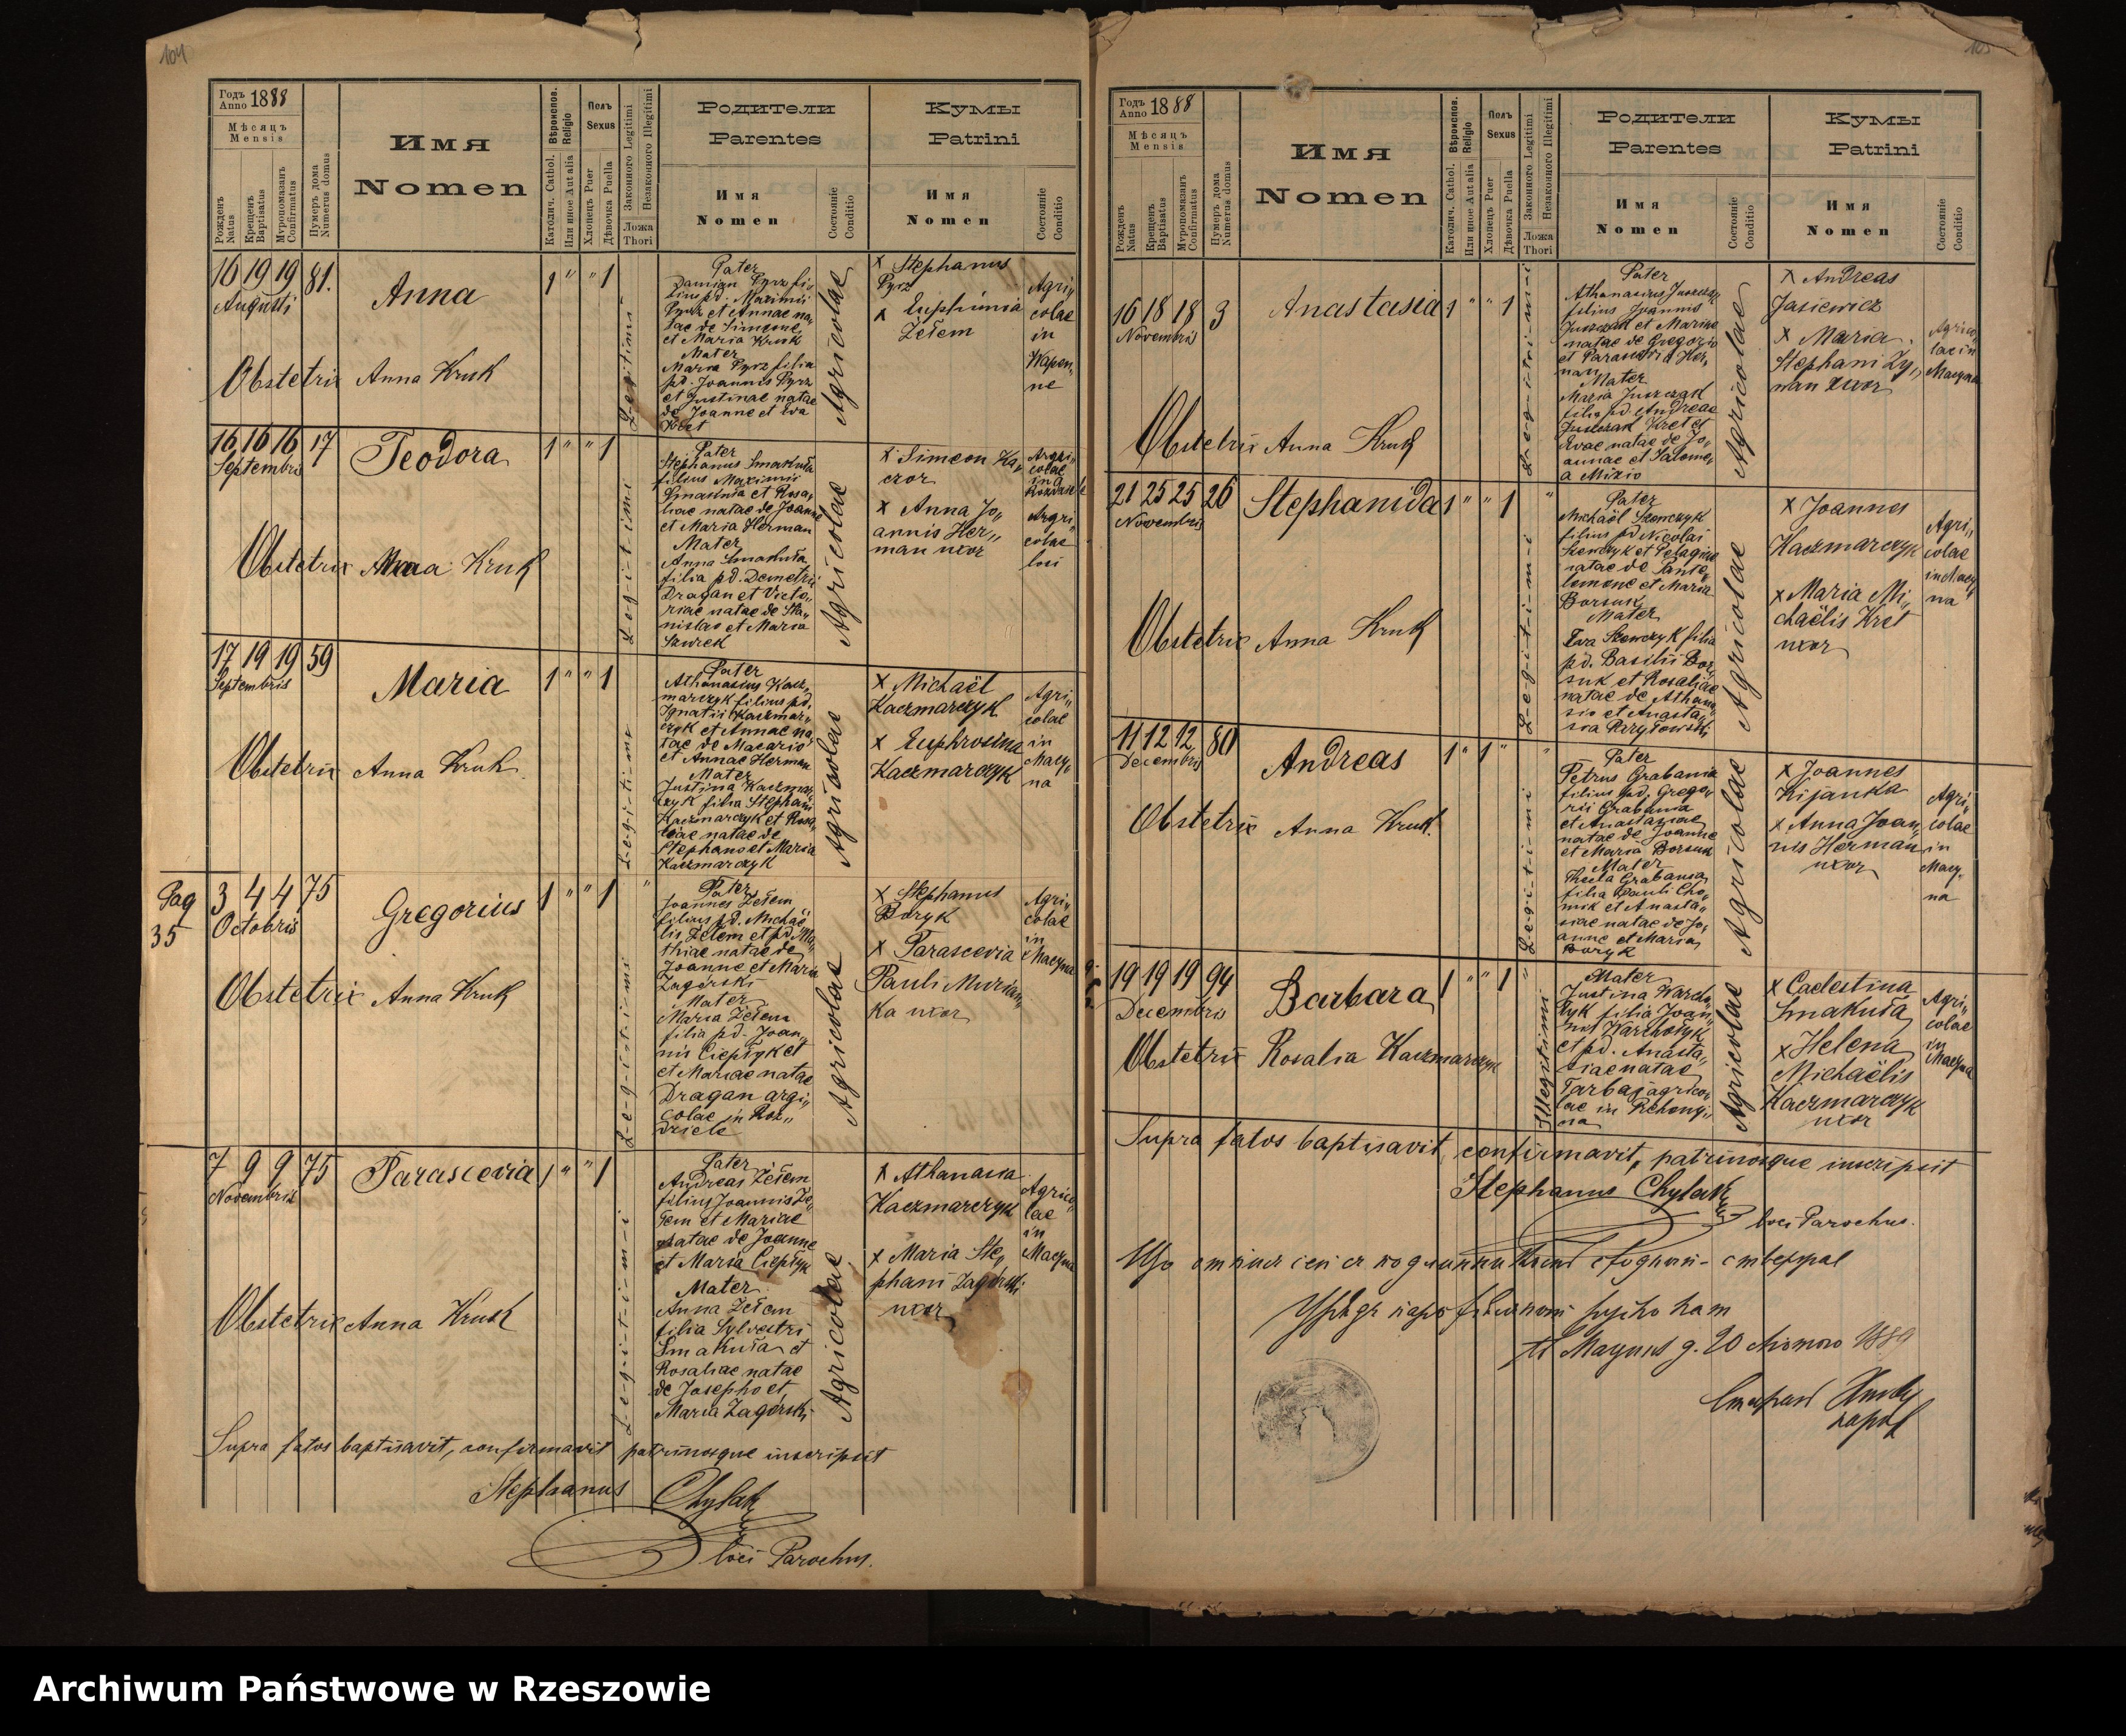 104
Годъ
Anno 1888
Мѣсяцъ
Mensis
Рожденъ
Natus
Крещенъ
Baptisatus
Мѵропомазанъ
Confirmatus
Нумеръ дома
Numerus domus
Имя
Nomen
Вѣроиспов.
Religio
Католич. Cathol.
Или иное Aut alia
Полъ
Sexus
Хлопецъ Puer
Дѣвочка Puella
Законного Legitimi
Незаконного Illegitimi
Ложа
Thori
Родители
Parentes
Имя
Nomen
Состояніе
Conditio
Кумы
Patrini
Имя
Nomen
Состояніе
Conditio
16 19 19 81.
Augusti
Anna
1 " " 1
Legitimi
Pater
Damian Pyrz fi„
lius pd. Maximii
Pyrz et Annae na„
tae de Simeone
et Maria Kruk
Mater
Maria Pyrz filia
pd. Joannis Pyrz
et Justinae natae
de Joanne et Eva
Kret
Agricolae
x Stephanus
Pyrz
x Euphimia
Zełem
Agri„
colae
in
Wapen„
ne
Obstetrix Anna Kruk
16 16 16 17
Septembris
Teodora
1 " " 1
Legitimi
Pater
Stephanus Smakuła
filius Maximii
Smakuła et Rosa„
liae natae de Joanne
et Maria Herman
Mater
Anna Smakuła
filia pd. Demetrii
Dragan et Victo„
riae natae de Sta„
nislao et Maria
Skwrek
Agricolae
x Simeon Ka„
czor
x Anna Jo„
annis Her„
man uxor
Agri„
colae
in
Rozdziele
Agri„
colae
loci
Obstetrix Anna Kruk
17 19 19 59
Septembris
Maria
1 " " 1
Legitimi
Pater
Athanasius Kacz„
marczyk filius pd.
Ignatii Kaczmar„
czyk et Annae na„
tae de Macario
et Annae Herman
Mater
Justina Kaczmar„
czyk filia Stephani
Kaczmarczyk et Rosa„
liae natae de
Stephano et Maria
Kaczmarczyk
Agricolae
x Michaël
Kaczmarczyk
x Euphrosina
Kaczmarczyk
Agri„
colae
in
Macy„
na
Obstetrix Anna Kruk.
Pag
35
3 4 4 75
Octobris
Gregorius
1 " " 1 "
Legitimi
Pater
Joannes Zełem
filius pd. Michaë„
lis Zełem et pd. Ma„
thiae natae de
Joanne et Maria
Zagórski
Mater
Maria Zełem
filia pd. Joan„
nis Ciepłyk et
et Mariae natae
Dragan agri„
colae in Roz„
dziele
Agricolae
x Stephanus
Boryk
x Parascevia
Pauli Murian„
ka uxor
Agri„
colae
in
Macyna
Obstetrix Anna Kruk
7 9 9 75
Novembris
Parascevia
1 " " 1
Legitimi
Pater
Andreas Zełem
filius Joannis Ze„
łem et Mariae
natae de Joanne
et Maria Ciepłyk
Mater
Anna Zełem
filia Sylvestri
Smakuła et
Rosaliae natae
de Josepho et
Maria Zagórski
Agricolae
x Athanasia
Kaczmarczyk
x Maria Ste„
phani Zagórski
uxor
Agrico„
lae
in
Macyna
Obstetrix Anna Kruk
Supra fatos baptisavit, confirmavit patrinosque inscripsit
Stephanus Chylak
loci Parochus.
105
Годъ
Anno 1888
Мѣсяцъ
Mensis
Рожденъ
Natus
Крещенъ
Baptisatus
Мѵропомазанъ
Confirmatus
Нумеръ дома
Numerus domus
Имя
Nomen
Вѣроиспов.
Religio
Католич. Cathol.
Или иное Aut alia
Полъ
Sexus
Хлопецъ Puer
Дѣвочка Puella
Законного Legitimi
Незаконного Illegitimi
Ложа
Thori
Родители
Parentes
Имя
Nomen
Состояніе
Conditio
Кумы
Patrini
Имя
Nomen
Состояніе
Conditio
16 18 18 3
Novembris
Anastasia
1 " " 1
Legitimi
Pater
Athanasius Juszczak
filius Joannis
Juszczak et Mariae
natae de Gregorio
et Parascevia Her„
man
Mater
Maria Juszczak
filia pd. Andreae
Juszczak Kret et
Evae natae de Jo„
annae et Salome„
a Mizio
Agricolae
x Andreas
Jasiewicz
x Maria
Stephani Zy„
man uxor
Agrico„
lae in
Macyna
Obstetrix Anna Kruk
21 25 25 26
Novembris
Stephanida
1 " " 1 "
Legitimi
Pater
Michaël Szewczyk
filius pd Nicolai
Szewczyk et Pelagiae
natae de Pante„
lemone et Maria
Borsuk
Mater
Eva Szewczyk filia
pd. Basilii Bor„
suk et Rosaliae
natae de Athana„
sio et Anasta„
sia Przyłowski
Agricolae
x Joannes
Kaczmarczyk
x Maria Mi„
chaëlis Kret
uxor
Agri„
colae
in Macy„
na
Obstetrix Anna Kruk
11 12 12 80
Decembris
Andreas
1 " 1 " "
Legitimi
Pater
Petrus Grabania
filius pd. Grego„
rii Grabania
et Anastasiae
natae de Joanne
et Maria Borsuk
Mater
Thecla Grabania
filia Pauli Cho„
mik et Anasta„
siae natae de Jo„
anne et Maria
Boryk
Agricolae
x Joannes
Kijanka
x Anna Joan„
nis Herman
uxor
Agri„
colae
in
Macy„
na
Obstetrix Anna Kruk.
19 19 19 94
Decembris
Barbara
1 " " 1 "
Illegitimi
Mater
Justina Warcho„
łyk filia Joan„
nis Warchołyk
et pd. Anasta„
siae natae
Tarbaj agrico„
lae in
Agricolae
x Caelestina
Smakuła
x Helena
Michaëlis
Kaczmarczyk
uxor
Agri„
colae
in
Macyna
Obstetrix Rosalia Kaczmarczyk
Supra fatos baptisavit, confirmavit, patrinosque inscripsit
Stephanus Chylak
loci Parochus.
Archiwum Państwowe w Rzeszowie